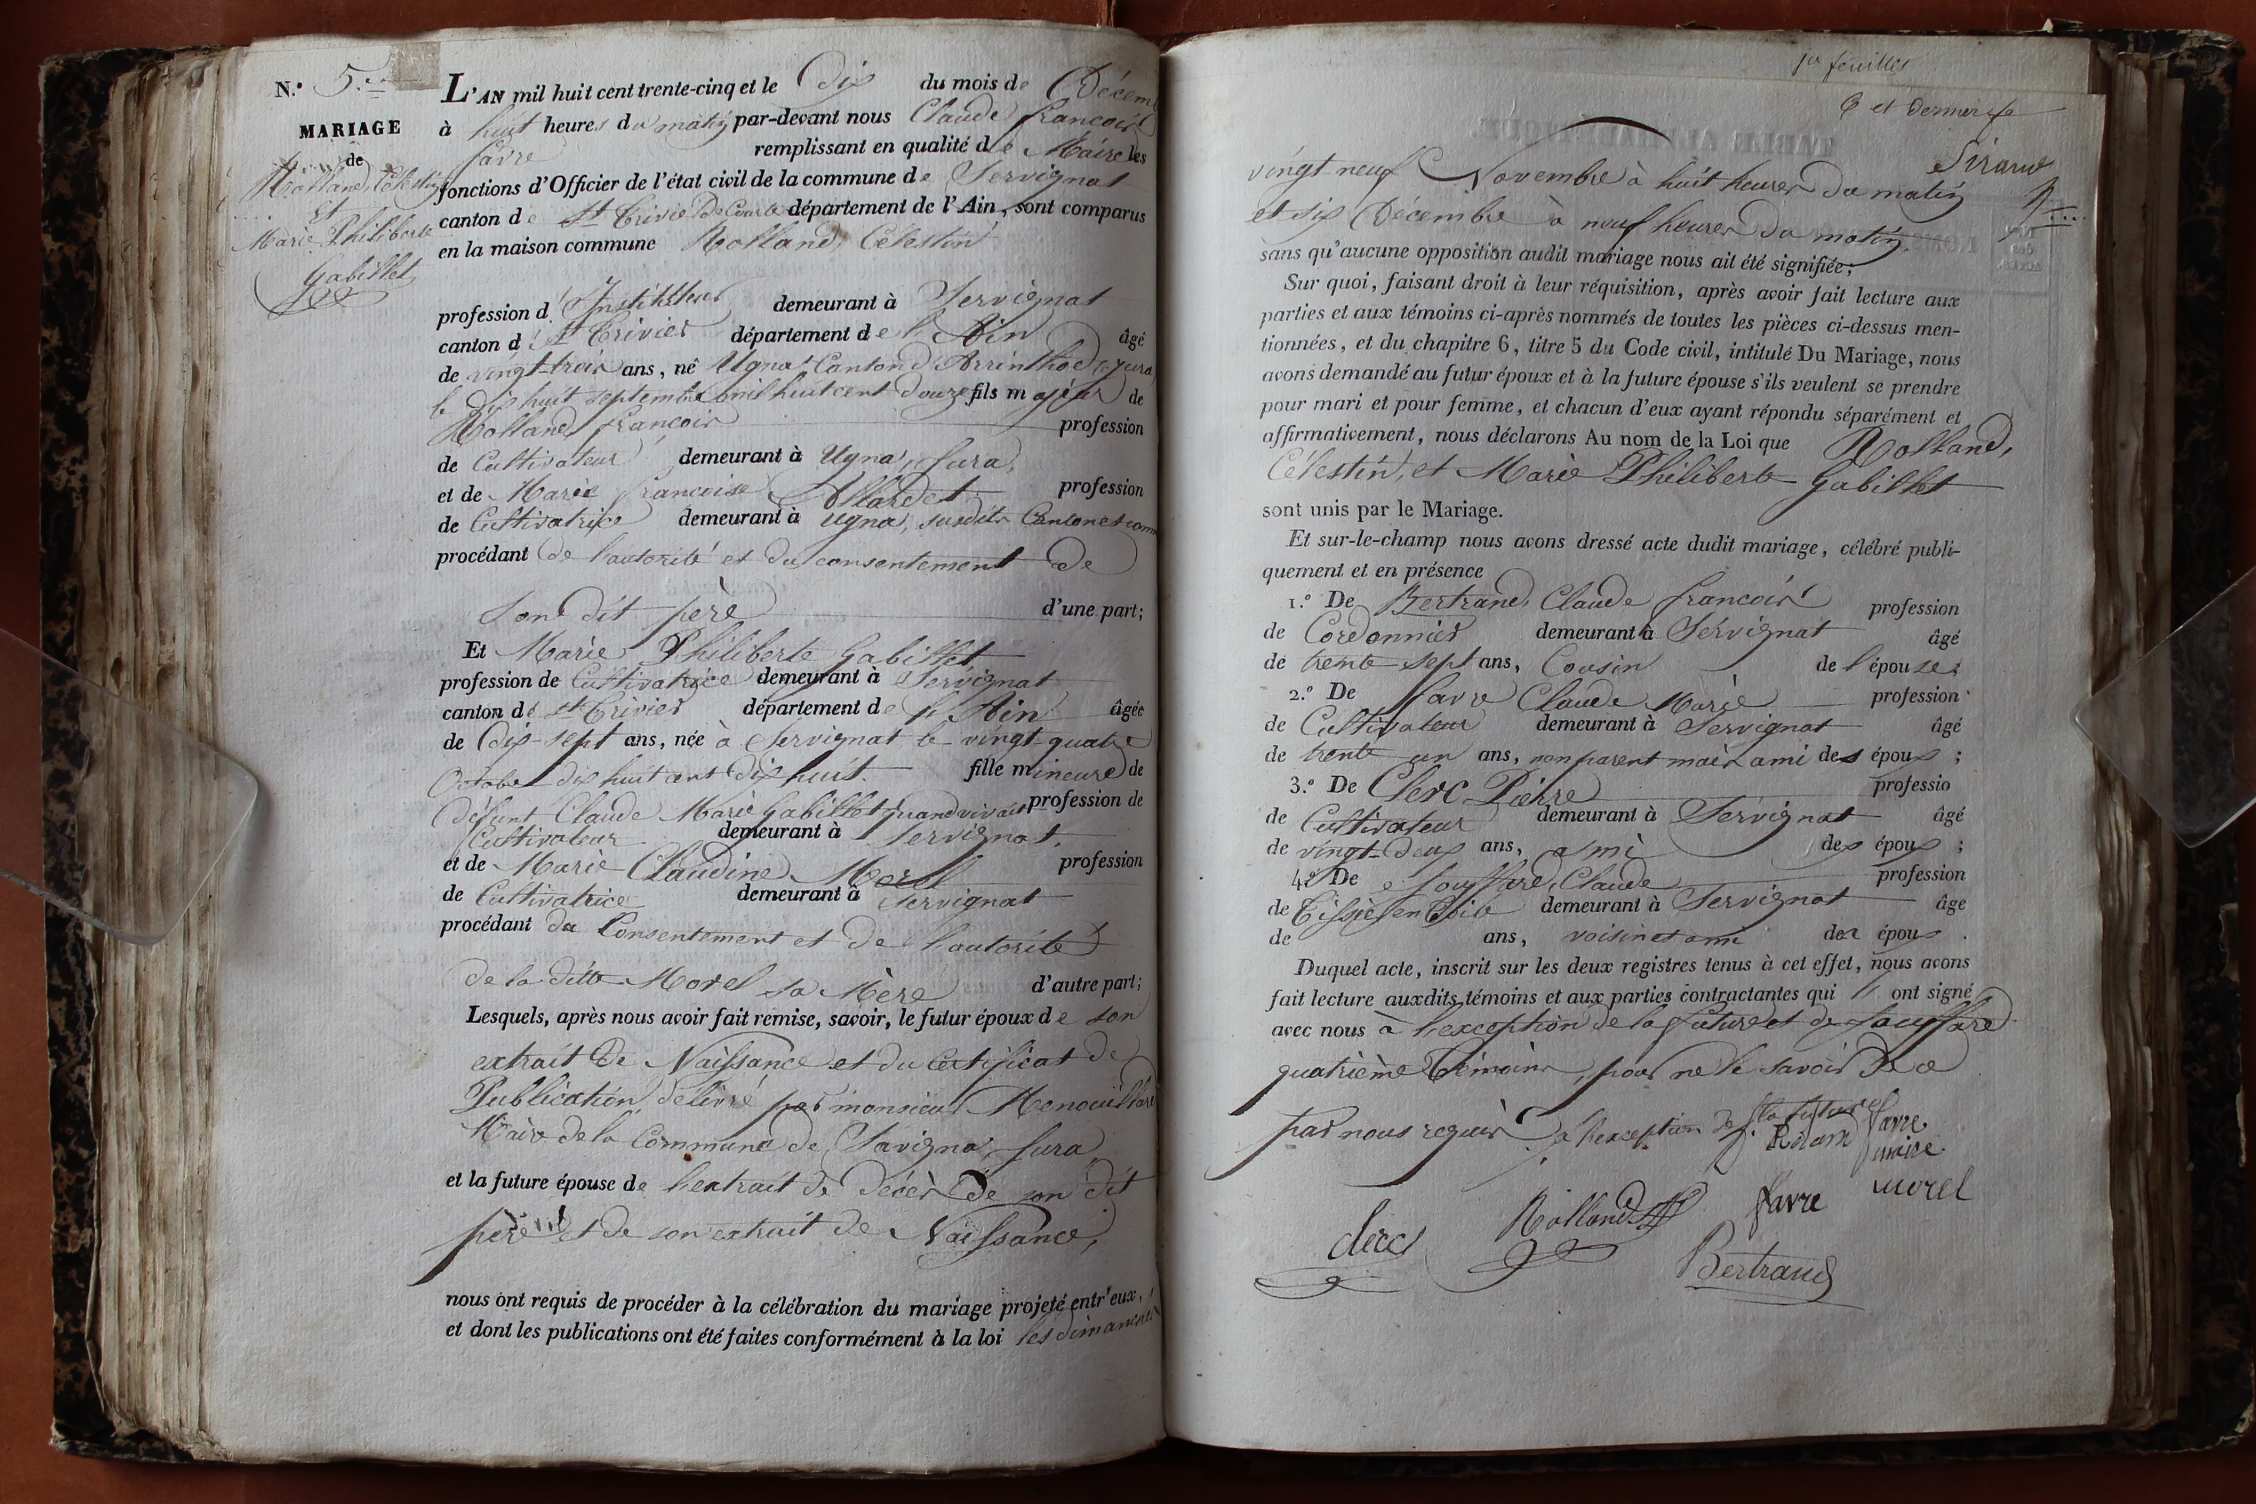 N.º 5.e
MARIAGE
de
Rolland, Célestin
et
Marie Philiberte
Gabillet
L'AN mil huit cent trente-cinq et le Dix du mois de Décem
à huit heures du matin par-devant nous Claude françois
favre remplissant en qualité de Maire les
fonctions d'Officier de l'état civil de la commune de Servignat
canton de St Trivier De Courte département de l'Ain, sont comparus
en la maison commune Rolland, Célestin
profession d'Instituteur demeurant à Servignat
canton de St Trivier département de l'Ain âgé
de vingt-trois ans, né Ugna Canton d'Arrinthod, Jura,
le dix huit septembre mil huit cent douze fils majeur de
Rolland, françois profession
de Cultivateur demeurant à Ugna, Jura,
et de Marie françoise Allardet profession
de Cultivatrice demeurant à Ugna, susdits Canton et comm
procédant de l'autorité et du consentement de
Son dit père d'une part;
Et Marie Philiberte Gabillet
profession de Cultivatrice demeurant à Servignat
canton de St Trivier département de l'Ain âgée
de Dix-sept ans, née à Servignat le vingt-quatre
Octobre dix huit cent dix huit. fille mineure de
Défunt Claude Marie Gabillet quand vivait profession de
Cultivateur demeurant à Servignat,
et de Marie Claudine Morel profession
de Cultivatrice demeurant à Servignat
procédant du Consentement et de l'autorité
de la ditte Morel sa Mère d'autre part;
Lesquels, après nous avoir fait remise, savoir, le futur époux de son
extrait de Naissance et du Certificat de
Publication délivré par monsieur Menouillard
Maire de la Commune de Savigna, Jura
et la future épouse de l'extrait de Décès de son dit
père et de son extrait de Naissance,
nous ont requis de procéder à la célébration du mariage projeté entr'eux,
et dont les publications ont été faites conformément à la loi les dimanches
1er feuilles
6 et dernier fe
Sirand
vingt neuf Novembre à huit heures du matin
et six Décembre à neuf heures du matin
sans qu'aucune opposition audit mariage nous ait été signifiée;
Sur quoi, faisant droit à leur réquisition, après avoir fait lecture aux
parties et aux témoins ci-après nommés de toutes les pièces ci-dessus men-
tionnées, et du chapitre 6, titre 5 du Code civil, intitulé Du Mariage, nous
avons demandé au futur époux et à la future épouse s'ils veulent se prendre
pour mari et pour femme, et chacun d'eux ayant répondu séparément et
affirmativement, nous déclarons Au nom de la Loi que Rolland,
Célestin, et Marie Philiberte Gabillet
sont unis par le Mariage.
Et sur-le-champ nous avons dressé acte dudit mariage, célébré publi-
quement et en présence
1.º De Bertrand, Claude françois profession
de Cordonnier demeurant à Servignat âgé
de trente sept ans, Cousin de l'épouse;
2.º De favre Claude Marie profession
de Cultivateur demeurant à Servignat âgé
de trente un ans, non parent mais ami des époux;
3.º De Clerc Pierre professio
de Cultivateur demeurant à Servignat âgé
de vingt-Deux ans, ami des époux;
4.º De Jouffard, Claude profession
de Tissier en toile demeurant à Servignat âge
de ans, voisin et ami des époux.
Duquel acte, inscrit sur les deux registres tenus à cet effet, nous avons
fait lecture auxdits témoins et aux parties contractantes qui ont signé
avec nous à l'exception de la future et de Jouffard
quatrième Témoins, pour ne le savoir De ce
par nous requis à l'exception de la future
favre
maire
morel
favre
Rolland
clerc
Bertrand